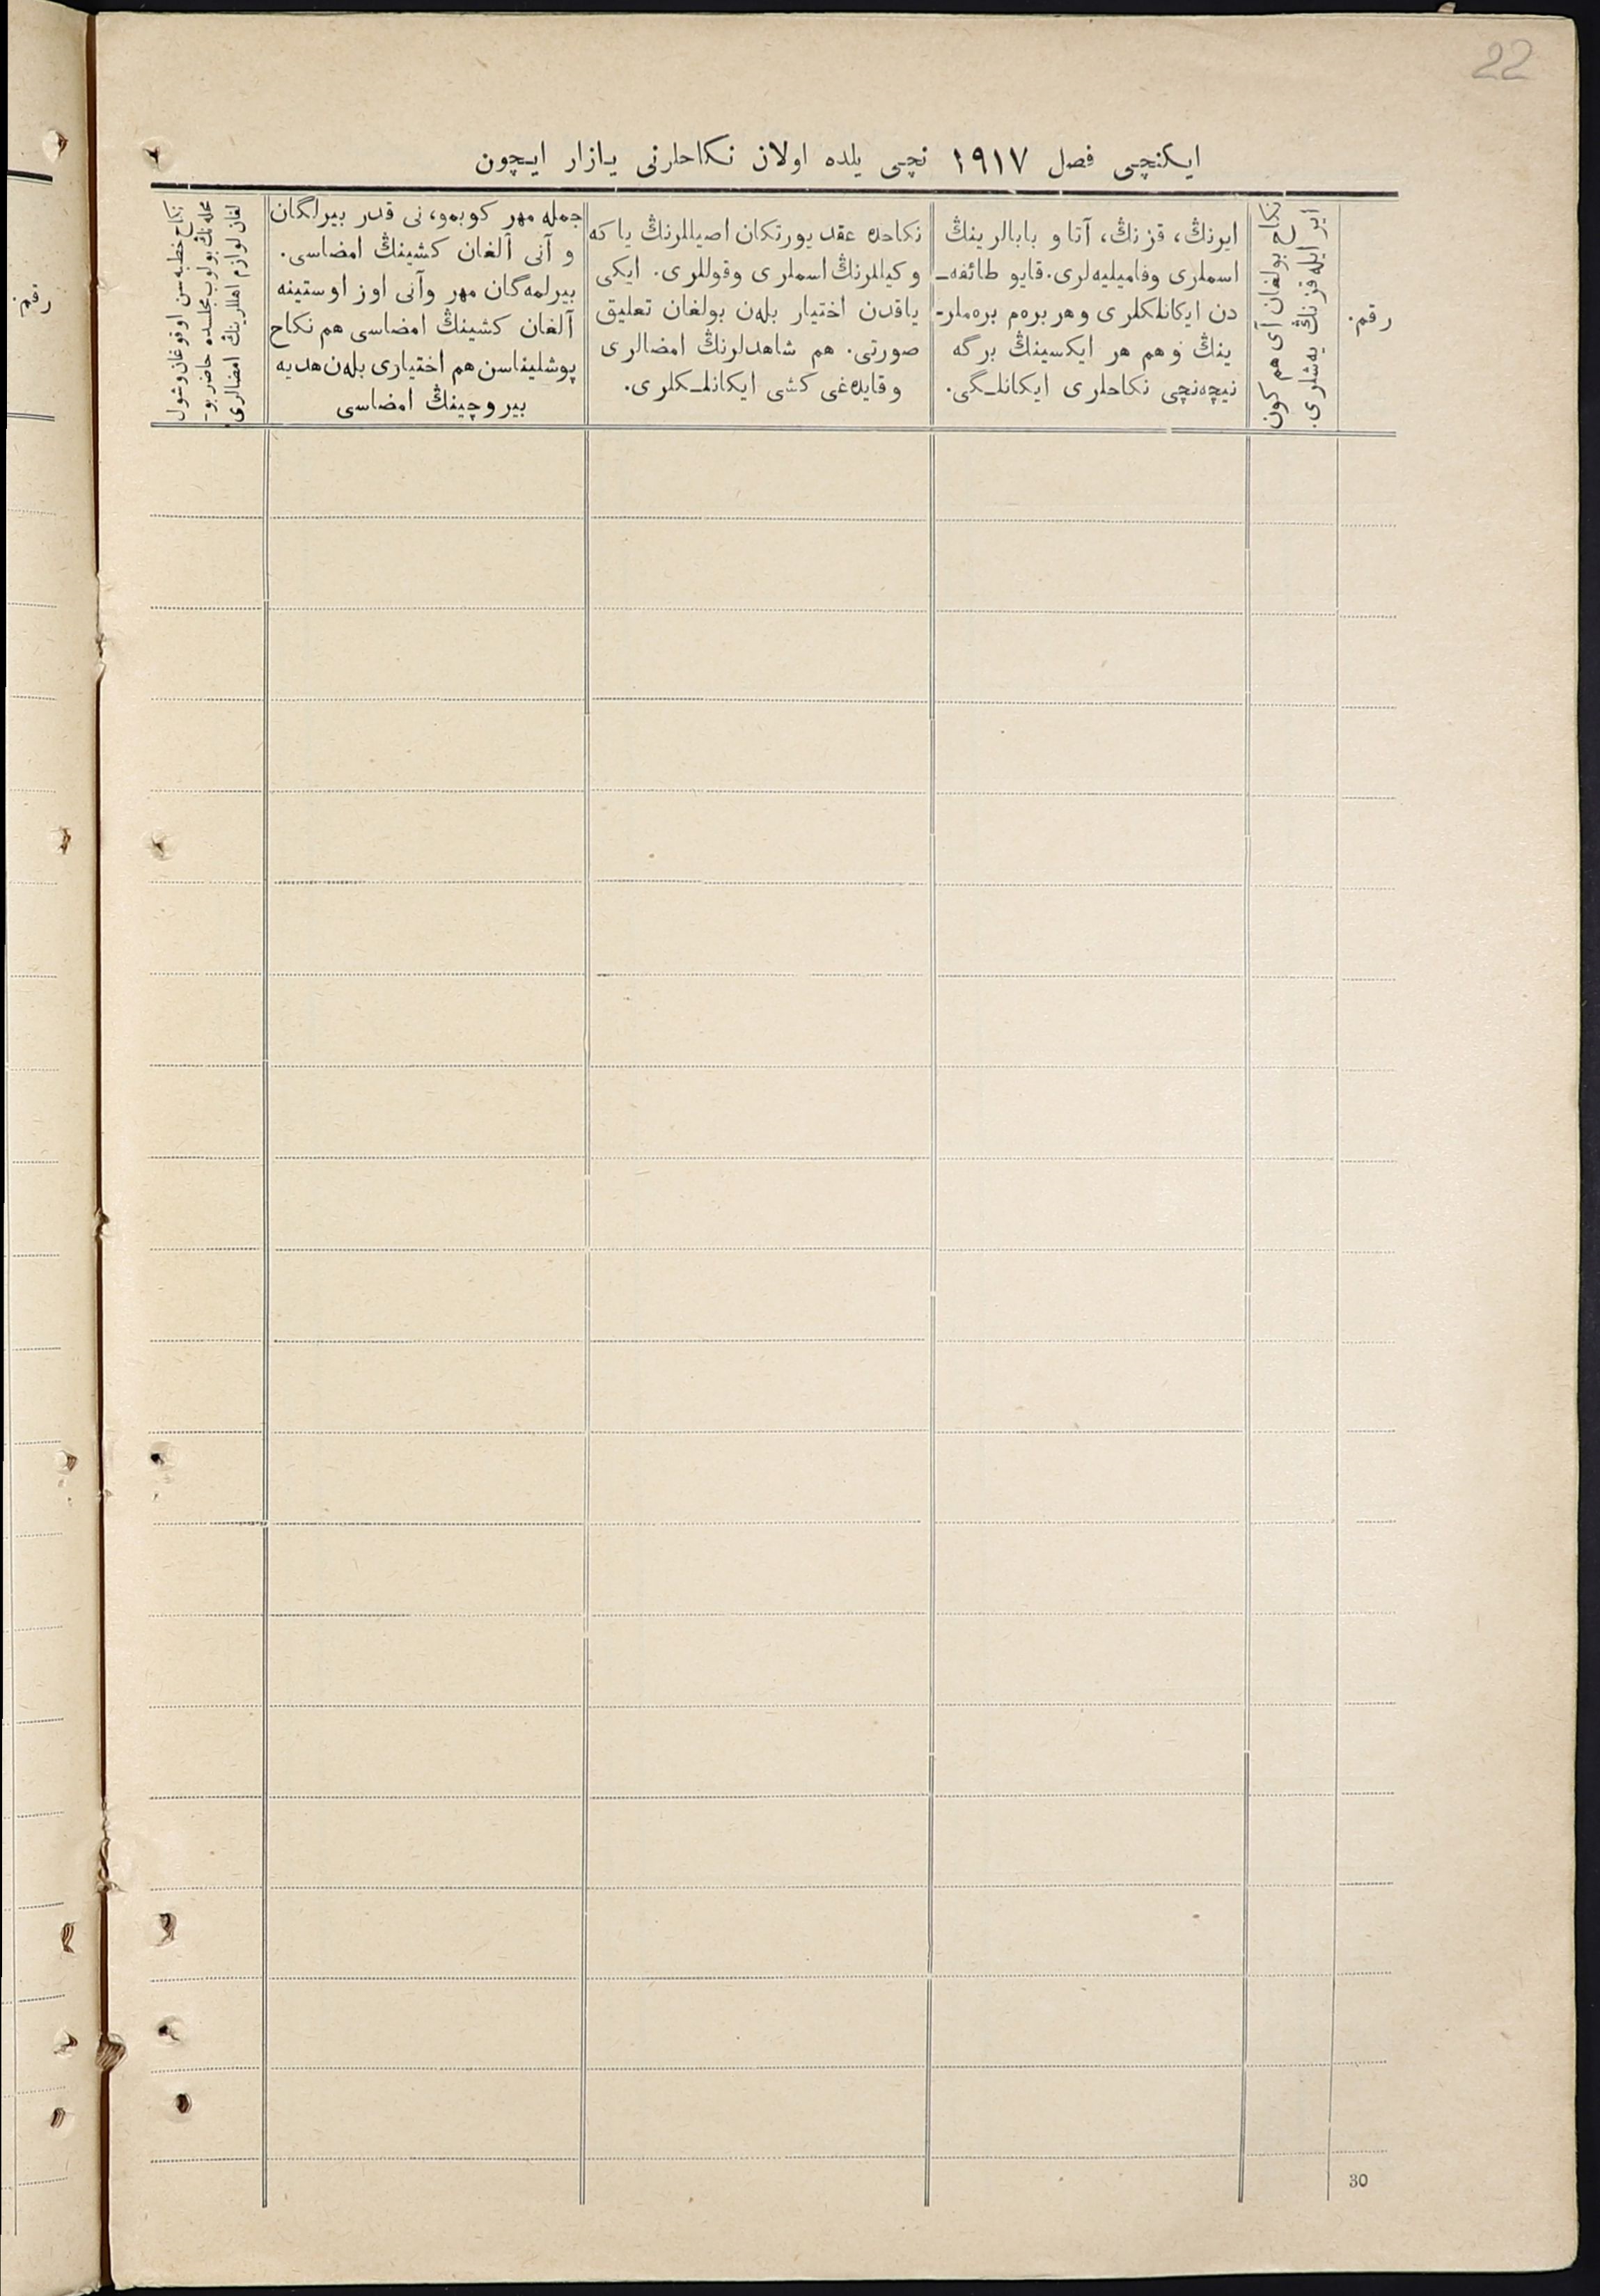 22
ایکنچی فصل ۱۹۱۷ نچی یلده اولان نکاحلرنی یازار ایچون
رقم.
نکاح بولغان آی هم کون
ایر ایله قزنڭ یه‌شلری.
ایرنڭ، قزنڭ، آتا و بابالرینڭ
اسملری وفامیلیه‌لری. قایو طائفه‌ـ
دن ایکانلکلری وهر بره‌م بره‌ملرـ
ینڭ وهم هر ایکسینڭ برگه
نیچه‌نچی نکاحلری ایکانلـگی.
نکاحده عقد یورتکان اصیللرنڭ یا که
وکیللرنڭ اسملری وقوللری. ایکی
یاقدن اختیار بله‌ن بولغان تعلیق
صورتی. هم شاهدلرنڭ امضالری
وقایده‌غی کشی ایکانلـکلری.
جمله مهر کوبمو، نی قدر بیرلگان
و آنی آلغان کشینڭ امضاسی.
بیرلمه‌گان مهر وآنی اوز اوستینه
آلغان کشینڭ امضاسی هم نکاح
پوشلیناسن هم اختیاری بله‌ن هدیه
بیروچینڭ امضاسی
نکاح خطبه‌سن اوقوغان وشول
محله‌نڭ بولوب مجلسده حاضر بوـ
لغان لوازم اهللرینڭ امضالری
رقم.
30